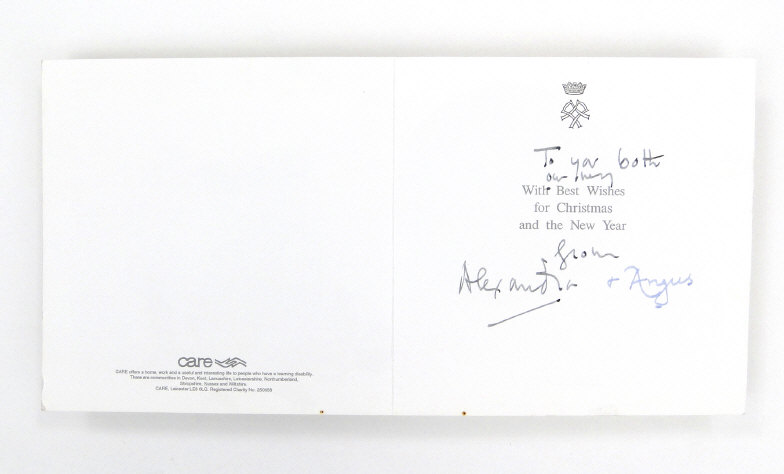 care
CARE offers a home, work and a useful and interesting life to people who have a learning disability.
There are communities in Devon, Kent, Lancashire, Leicestershire, Northumberland,
Shropshire, Sussex and Wiltshire.
CARE, Leicester LE8 0LG. Registered Charity No. 250058
To you both
our very
With Best Wishes
for Christmas
and the New Year
from
Alexandra + Angus